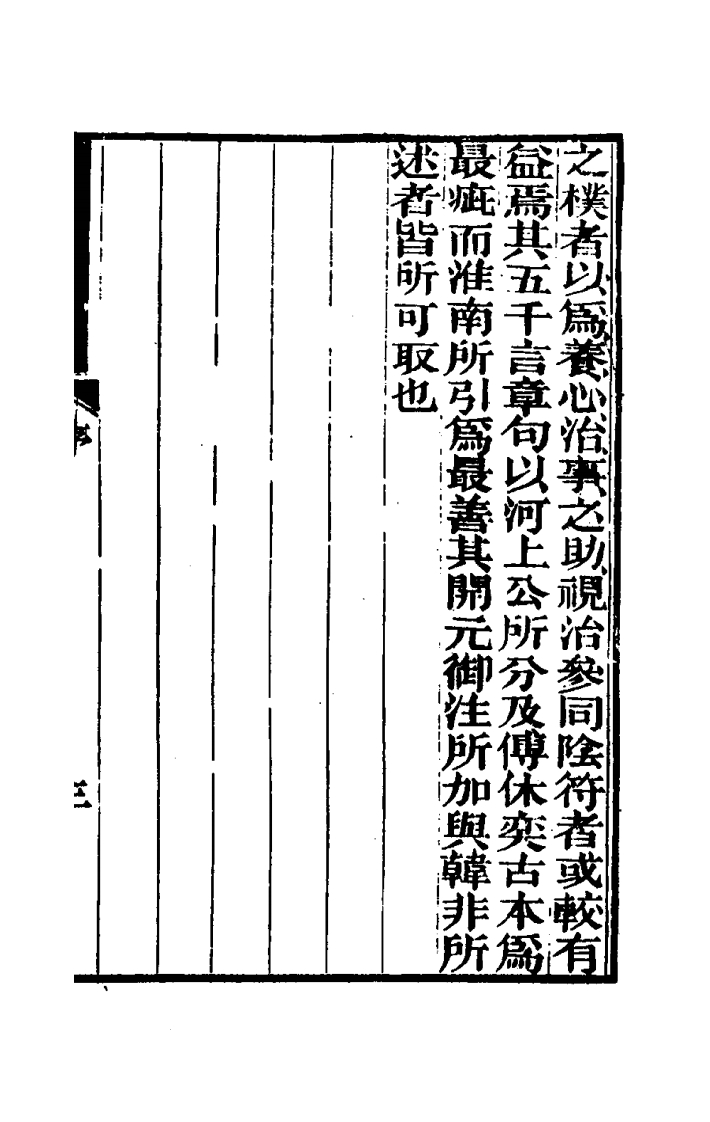 之樸者以爲養心治事之助視治參同陰符者或較有
益焉其五千言章句以河上公所分及傅休奕古本爲
最疵而淮南所引爲最善其開元御注所加與韓非所
述者皆所可取也
序
三